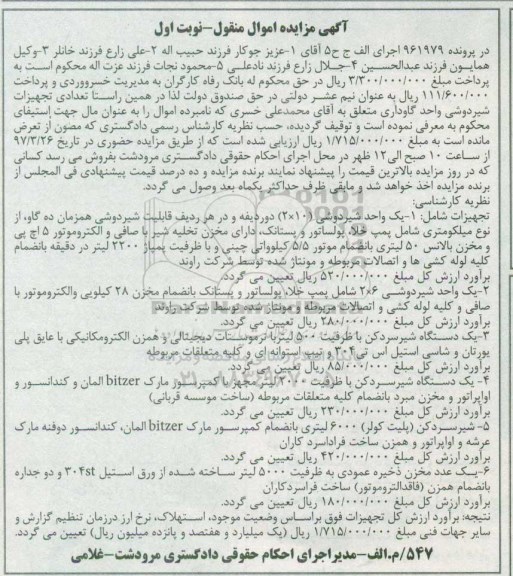 آگهی مزایده اموال منقول-نوبت اول
در پرونده ۹۶۱۹۷۹ اجرای الف ج ح۵ آقای ۱-عزیز جوکار فرزند حبیب اله ۲-علی زارع فرزند خانلر ۳-وکیل
همایون فرزند عبدالحسین ۴-جلال زارع فرزند نادعلی ۵-محمود نجات فرزند عزت اله محکوم است به
پرداخت مبلغ ۳/۳۰۰/۰۰۰/۰۰۰ ریال در حق محکوم له بانک رفاه کارگران به مدیریت خسرووردی و پرداخت
۱۱۱/۶۰۰/۰۰۰ ریال به عنوان نیم عشر دولتی در حق صندوق دولت لذا در همین راستا تعدادی تجهیزات
شیردوشی واحد گاوداری متعلق به آقای محمدعلی خسری که نامبرده اموال را به عنوان مال جهت استیفای
محکوم به معرفی نموده است و توقیف گردیده، حسب نظریه کارشناس رسمی دادگستری که مصون از تعرض
مانده است به مبلغ ۱/۷۱۵/۰۰۰/۰۰۰ ریال ارزیابی شده است که از طریق مزایده حضوری در تاریخ ۹۷/۳/۲۶
از ساعت ۱۰ صبح الی۱۲ ظهر در محل اجرای احکام حقوقی دادگستری مرودشت بفروش می رسد کسانی
که در روز مزایده بالاترین قیمت را پیشنهاد نمایند برنده مزایده و ده درصد قیمت پیشنهادی فی المجلس از
برنده مزایده اخذ خواهد شد و مابقی ظرف حداکثر یکماه بعد وصول می گردد.
نظریه کارشناسی:
تجهیزات شامل: ۱-یک واحد شیردوشی (۱۰×۲) دوردیفه و در هر ردیف قابلیت شیردوشی همزمان ده گاو، از
نوع میلکومتری شامل پمپ خلا، پولساتور و پستانک، دارای مخزن تخلیه شیر با صافی و الکتروموتور ۵ اچ پی
و مخزن بالانس ۵۰ لیتری بانضمام موتور ۵/۵ کیلوواتی چینی و با ظرفیت پمپاژ ۲۲۰۰ لیتر در دقیقه بانضمام
کلیه لوله کشی ها و اتصالات مربوطه و مونتاژ شده توسط شرکت راوند
برآورد ارزش کل مبلغ ۵۲۰/۰۰۰/۰۰۰ ریال تعیین می گردد.
۲-یک واحد شیردوشی ۶×۲ شامل پمپ خلا، پولساتور و پستانک بانضمام مخزن ۲۸ کیلویی والکتروموتور با
صافی و کلیه لوله کشی و اتصالات مربوطه و مونتاژ شده توسط شرکت راوند
برآورد ارزش کل مبلغ ۲۸۰/۰۰۰/۰۰۰ ریال تعیین می گردد.
۳-یک دستگاه شیرسردکن با ظرفیت ۵۰۰ لیتر با ترموستات دیجیتالی و همزن الکترومکانیکی با عایق پلی
یورتان و شاسی استیل اس تی۳۰۴ و تیپ استوانه ای و کلیه متعلقات مربوطه
برآورد ارزش کل مبلغ ۸۵/۰۰۰/۰۰۰ ریال تعیین می گردد.
۴- یک دستگاه شیرسردکن با ظرفیت ۳۰۰۰ لیتر مجهز با کمپرسور مارک bitzer المان و کندانسور و
اواپراتور و مخزن مبرد بانضمام کلیه متعلقات مربوطه (ساخت موسسه قربانی)
برآورد ارزش کل مبلغ ۲۳۰/۰۰۰/۰۰۰ ریال تعیین می گردد.
۵- شیرسردکن (پلیت کولر) ۶۰۰۰ لیتری بانضمام کمپرسور مارک bitzer المان، کندانسور دوفنه مارک
عرشه و اواپراتور و همزن ساخت فراداسرد کاران
برآورد ارزش کل مبلغ ۴۲۰/۰۰۰/۰۰۰ ریال تعیین می گردد.
۶-یک عدد مخزن ذخیره عمودی به ظرفیت ۵۰۰۰ لیتر ساخته شده از ورق استیل ۳۰۴st و دو جداره
بانضمام همزن (فاقدالتروموتور) ساخت فراسردکاران
برآورد ارزش کل مبلغ ۱۸۰/۰۰۰/۰۰۰ ریال تعیین می گردد.
نتیجه: برآورد ارزش کل تجهیزات فوق براساس وضعیت موجود، استهلاک، نرخ ارز درزمان تنظیم گزارش و
سایر جهات فنی مبلغ ۱/۷۱۵/۰۰۰/۰۰۰ ریال (یک میلیارد و هفتصد و پانزده میلیون ریال) تعیین می گردد.
۵۴۷/م.الف-مدیراجرای احکام حقوقی دادگستری مرودشت-غلامی